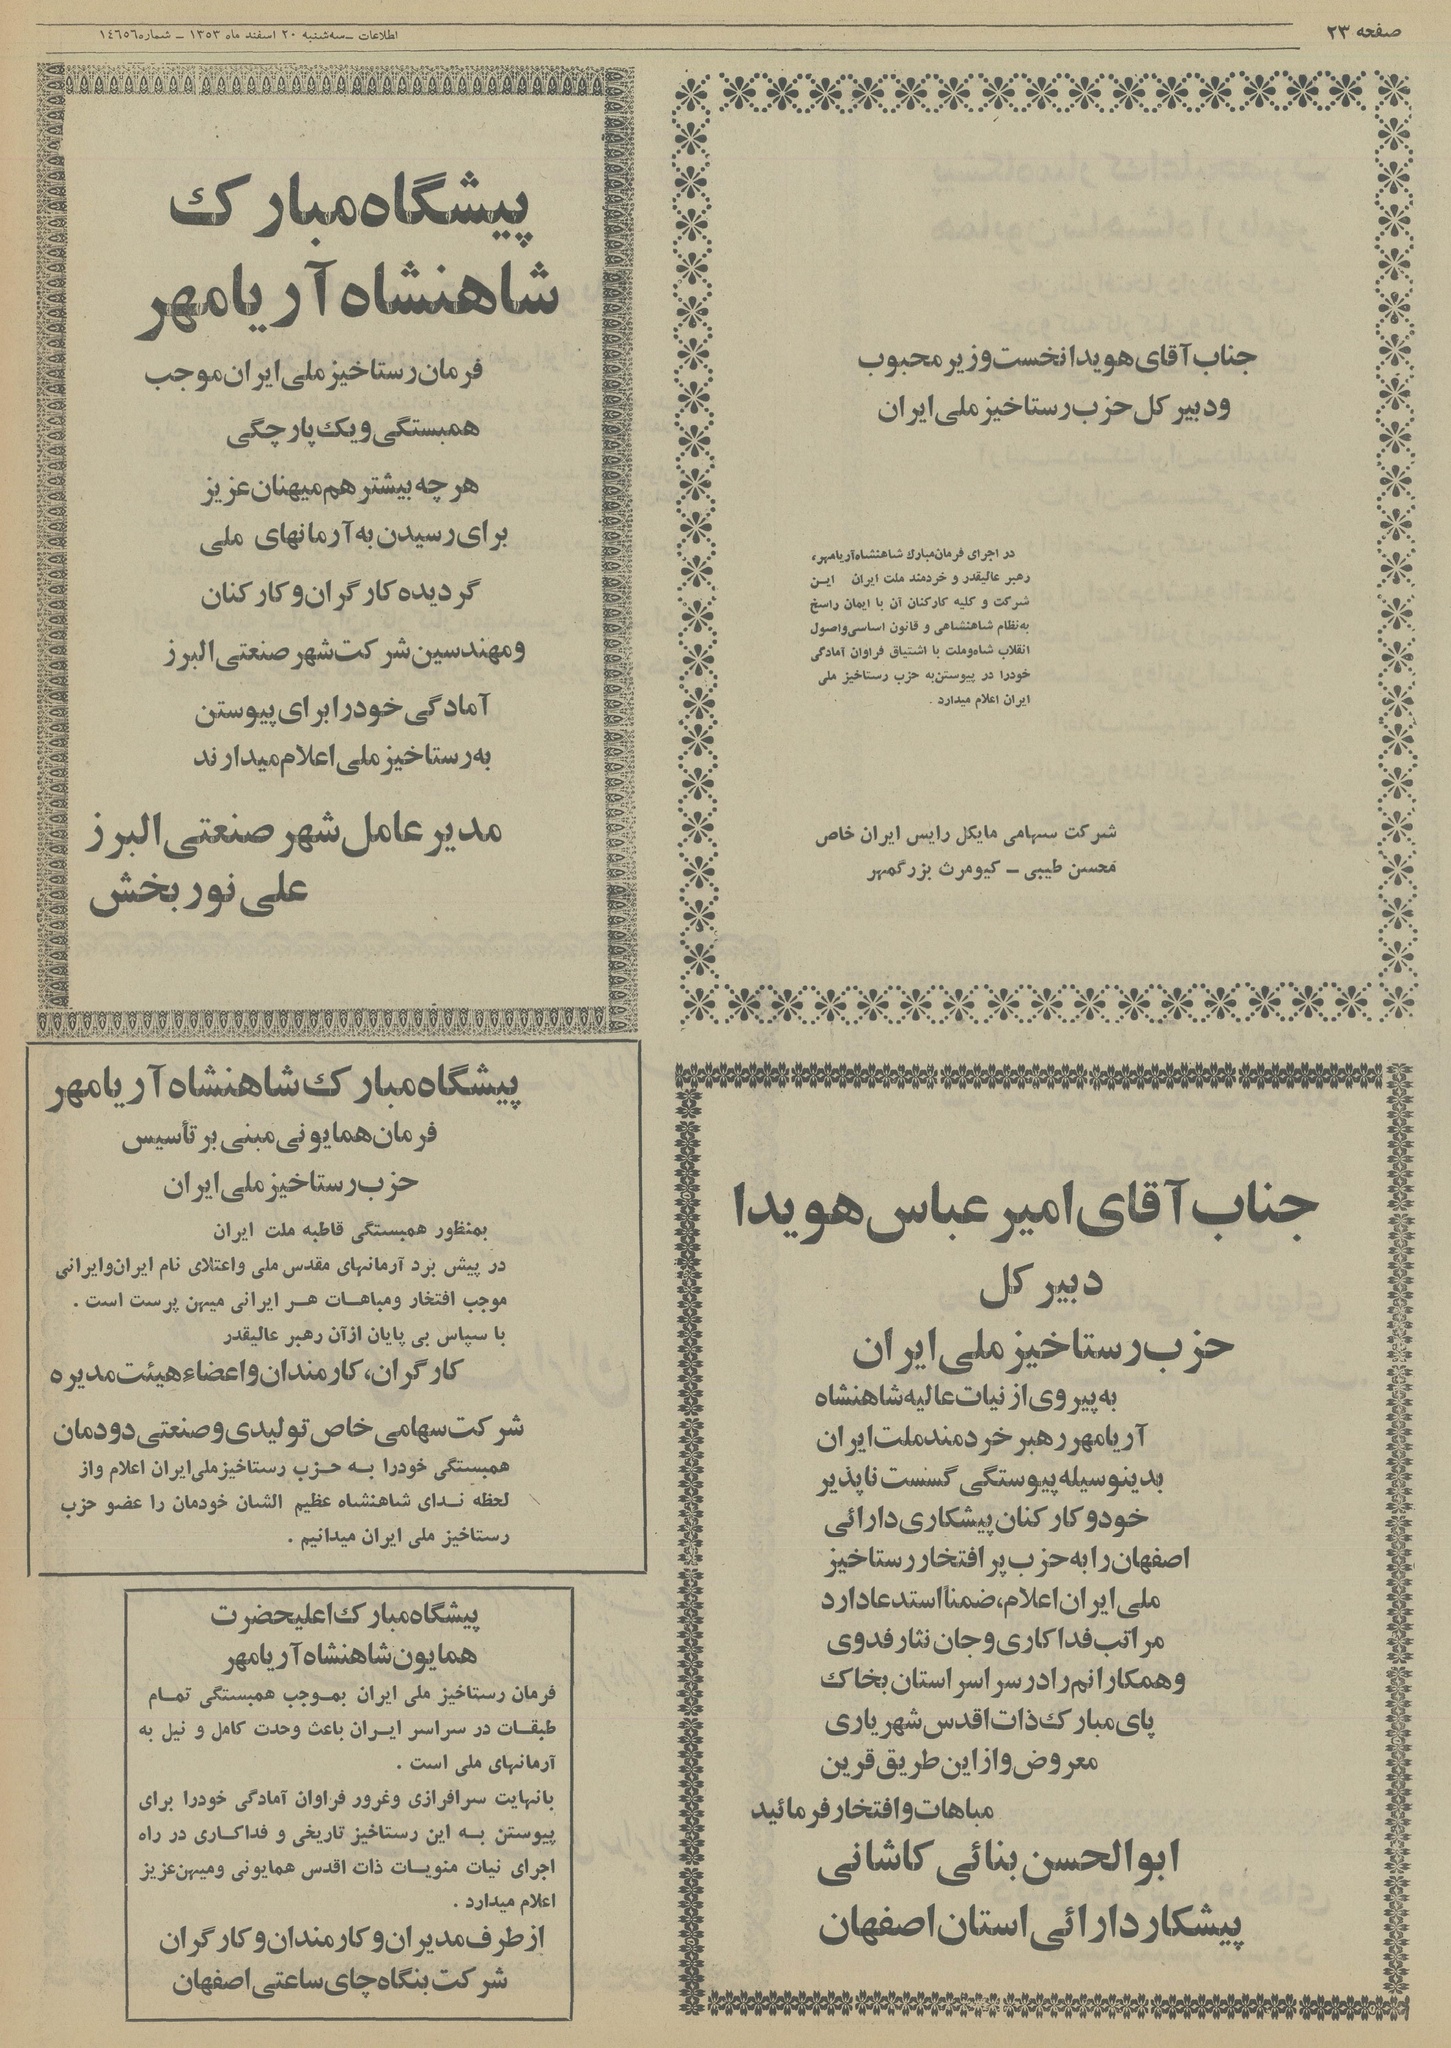 صفحه ۲۳
اطلاعات ـ سه‌شنبه ۲۰ اسفند ماه ۱۳۵۳ ـ شماره ۱۴۶۵۶
جناب آقای هویدا نخست وزیر محبوب
و دبیر کل حزب رستاخیز ملی ایران
در اجرای فرمان مبارك شاهنشاه آریامهر،
رهبر عالیقدر و خردمند ملت ایران این
شرکت و کلیه کارکنان آن با ایمان راسخ
به‌نظام شاهنشاهی و قانون اساسی و اصول
انقلاب شاه و ملت با اشتیاق فراوان آمادگی
خودرا در پیوستن به حزب رستاخیز ملی
ایران اعلام میدارد .
شرکت سهامی مایکل رایس ایران خاص
محسن طیبی ـ کیومرث بزرگمهر
پیشگاه مبارك
شاهنشاه آریامهر
فرمان رستاخیز ملی ایران موجب
همبستگی و یک پارچگی
هر چه بیشتر هم میهنان عزیز
برای رسیدن به آرمانهای ملی
گردیده کارگران و کارکنان
و مهندسین شرکت شهر صنعتی البرز
آمادگی خود را برای پیوستن
به رستاخیز ملی اعلام میدارند
مدیر عامل شهر صنعتی البرز
علی نوربخش
جناب آقای امیر عباس هویدا
دبیر کل
حزب رستاخیز ملی ایران
به پیروی از نیات عالیه شاهنشاه
آریامهر رهبر خردمند ملت ایران
بدینوسیله پیوستگی گسست ناپذیر
خود و کارکنان پیشکاری دارائی
اصفهان را به حزب پر افتخار رستاخیز
ملی ایران اعلام، ضمناً استدعا دارد
مراتب فداکاری و جان نثار فدوی
و همکارانم را در سراسر استان بخاک
پای مبارک ذات اقدس شهریاری
معروض و از این طریق قرین
مباهات و افتخار فرمائید
ابوالحسن بنائی کاشانی
پیشکار دارائی استان اصفهان
پیشگاه مبارك شاهنشاه آریامهر
فرمان همایونی مبنی بر تأسیس
حزب رستاخیز ملی ایران
بمنظور همبستگی قاطبه ملت ایران
در پیش برد آرمانهای مقدس ملی و اعتلای نام ایران و ایرانی
موجب افتخار و مباهات هر ایرانی میهن پرست است .
با سپاس بی پایان از آن رهبر عالیقدر
کارگران، کارمندان و اعضاء هیئت مدیره
شرکت سهامی خاص تولیدی و صنعتی دودمان
همبستگی خودرا به حزب رستاخیز ملی ایران اعلام و از
لحظه ندای شاهنشاه عظیم الشان خودمان را عضو حزب
رستاخیز ملی ایران میدانیم .
پیشگاه مبارك اعلیحضرت
همایون شاهنشاه آریامهر
فرمان رستاخیز ملی ایران بموجب همبستگی تمام
طبقات در سراسر ایران باعث وحدت کامل و نیل به
آرمانهای ملی است .
بانهایت سرافرازی و غرور فراوان آمادگی خودرا برای
پیوستن به این رستاخیز تاریخی و فداکاری در راه
اجرای نیات منویات ذات اقدس همایونی و میهن عزیز
اعلام میدارد .
از طرف مدیران و کارمندان و کارگران
شرکت بنگاه چای ساعتی اصفهان